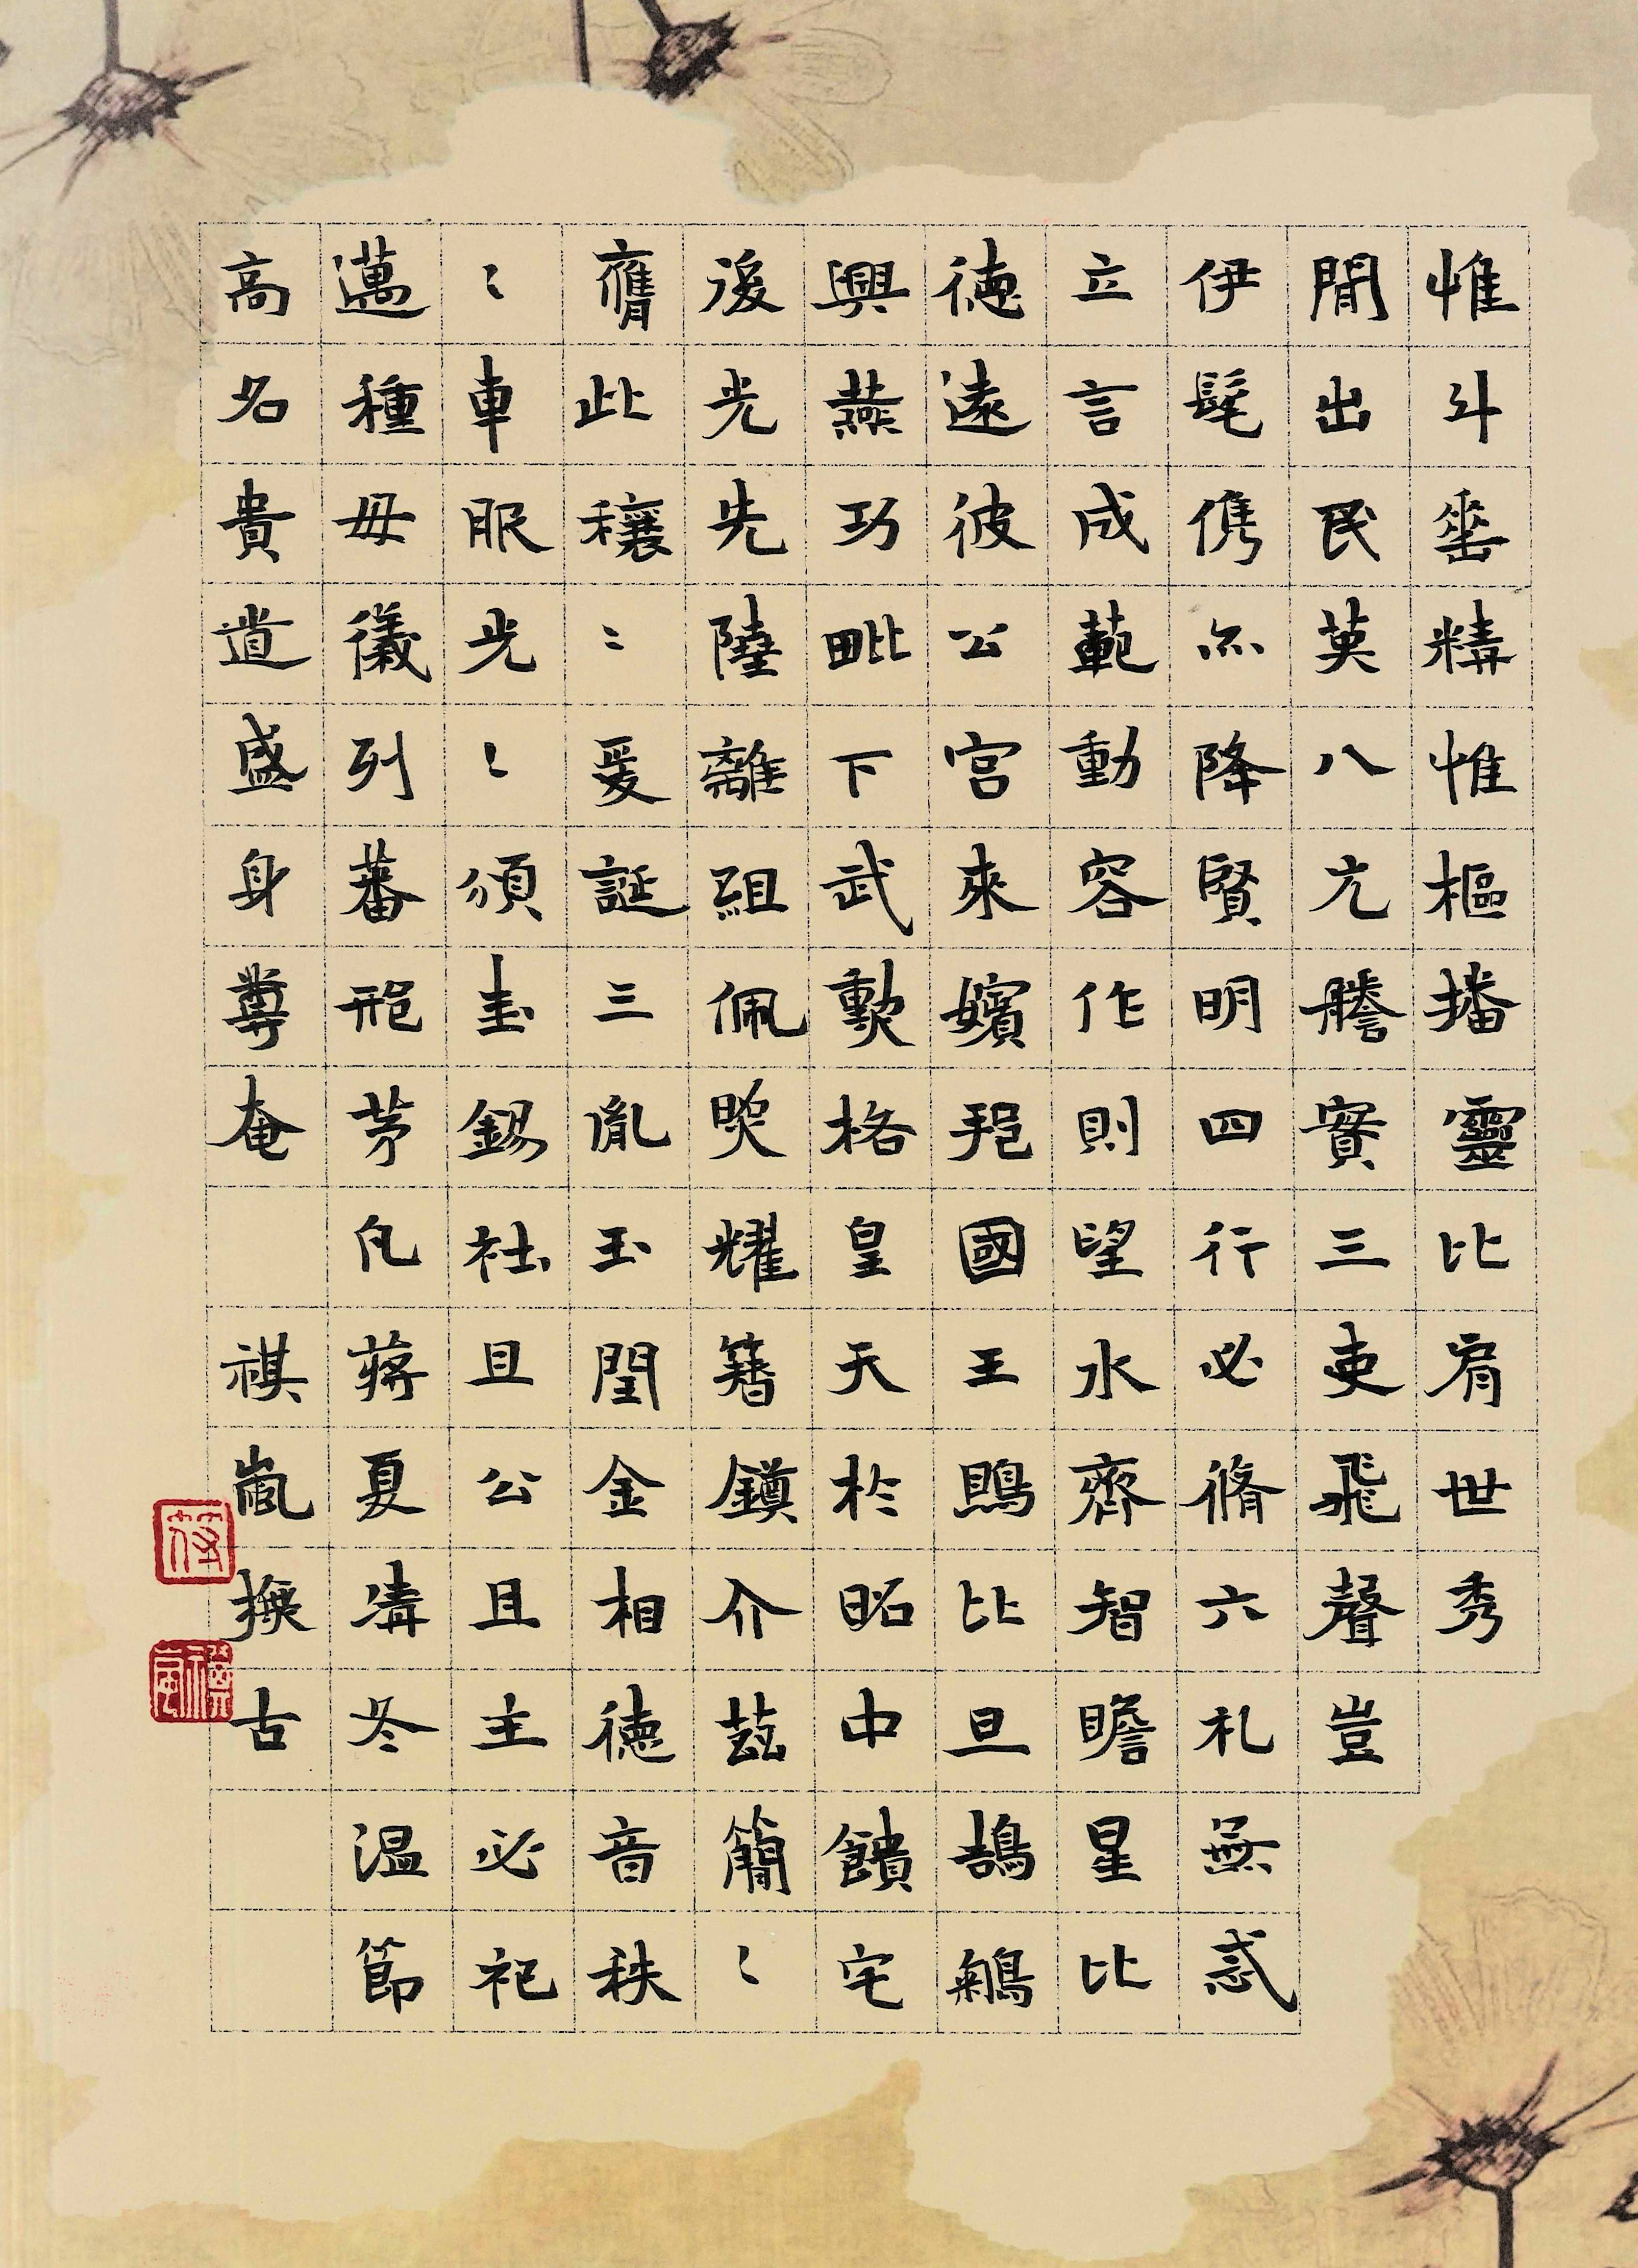 惟斗垂精惟樞播靈比肩世秀
閒出民英八元騰實三吏飛聲豈
伊髦儁亦降賢明四行必脩六札無忒
立言成範動容作則望水齊智瞻星比
德遠彼公宮來嬪邦國王鴡比旦鵠
興燕功毗下武勲格皇天於昭中饋宅
後光先陸離組佩照耀簪鎮介茲簡〻
膺此穰〻爰誕三胤玉閏金相德音秩
〻車服光〻頒圭錫社且公且主必祀
邁種母儀列蕃邢茅凡蔣夏凊冬温節
高名貴道盛身尊奄 祺嵐撫古
符
祺嵐